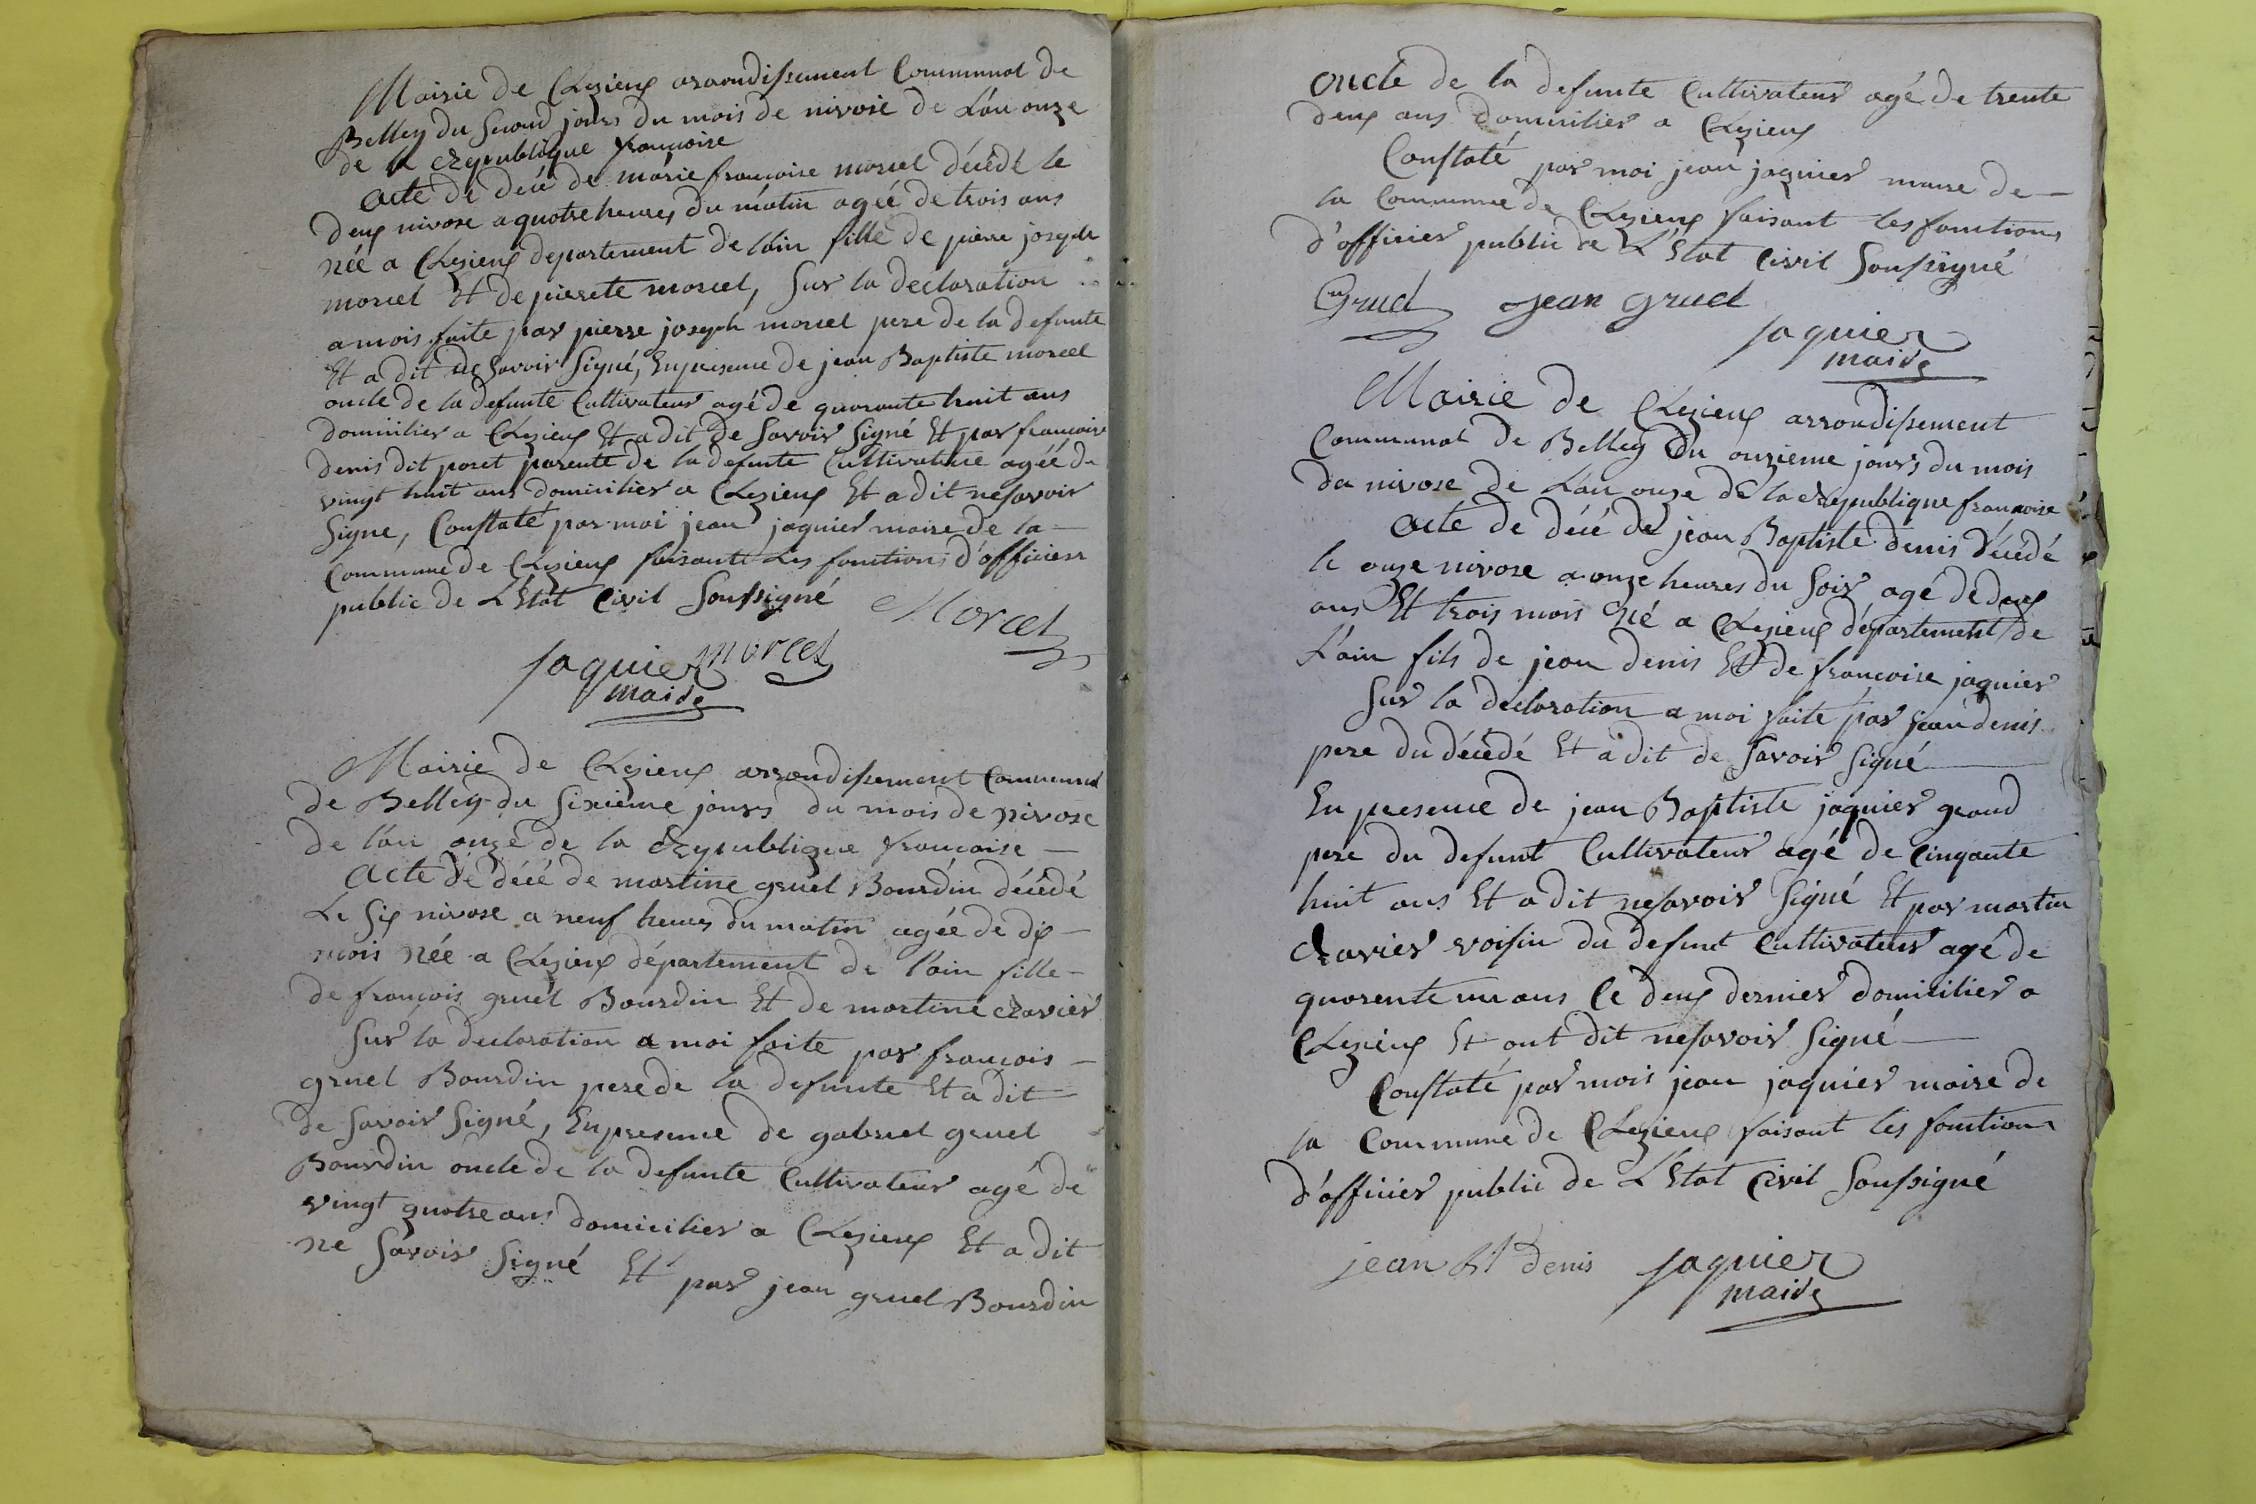 Mairie de Chezieux arrondissement Communal de
Belley du second jours du mois de nivose de L'an onze
de la Republique françoise
Acte de décé de marie françoise morcel décédé le
deux nivose a quatre heures du mâtin agéé de trois ans
née a Chezieux departement de l'ain fille de pierre joseph
morcel Et de pierrete morcel, Sur la declaration
a mois faite par pierre joseph morcel pere de la defunte
Et a dit de Savoir Signé, En presence de jean Baptiste morcel
oncle de la defunte Cultivateur agé de quarante huit ans
domicilier a Chezieux Et a dit de Savoir Signé Et par françoise
denis dit poret parente de la defunte Cultivatrice agéé de
vingt huit ans domicilier a Chezieux Et a dit ne savoir
Signe, Constaté par moi jean jaquier maire de la
Commune de Chezieux faisant les fonctions d'officier
public de L'État Civil Soussigné
Morcel
Jaquier morcel
maire
Mairie de Chezieux arrondissement Communal
de Belley du Sixieme jours du mois de nivose
de l'an onze de la Republique françoise
Acte de décé de martine gruel Bourdin décédé
Le Six nivose a neuf heures du matin agéé de dix
mois née a Chezieux département de l'ain fille
de françois gruel Bourdin Et de martine ravier
Sur la declaration a moi faite par françois
gruel Bourdin pere de la defunte Et a dit
de Savoir Signé, En presence de gabriel gruel
Bourdin oncle de la defunte Cultivateur agé de
vingt quatre ans domicilier a Chezieux Et a dit
ne Savoir Signé Et par jean gruel Bourdin
oncle de la defunte Cultivateur agé de trente
deux ans domicilier a Chezieux
Constaté par moi jean jaquier maire de
la Commune de Chezieux faisant les fonctions
d'officier public de L'Etat Civil Soussigné
Gruel jean gruel
Jaquier
maire
Mairie de Chezieux arrondissement
Communal de Belley du onzieme jours du mois
da nivose de L'an onze de la Republique françoise
Acte de décé de jean Baptiste denis décédé
le onze nivose a onze heures du Soir agé de deux
ans Et trois mois Né a Chezieux département de
L'ain fils de jean denis Et de françoise jaquier
Sur la declaration a moi faite par jean denis
pere du décédé Et a dit de Savoir Signé
En presence de jean Baptiste jaquier grand
pere du defunt Cultivateur agé de Cinqante
huit ans Et a dit ne savoir Signé Et par martin
ravier voisin du defunt Cultivateur agé de
quarente un ans Ce deux dernier domicilier a
Chezieux Et ont dit ne savoir Signé
Constaté par mois jean jaquier maire de
la Commune de Chezieux faisant les fonctions
d'officier public de L'Etat Civil Soussigné
jean denis Jaquier
maire